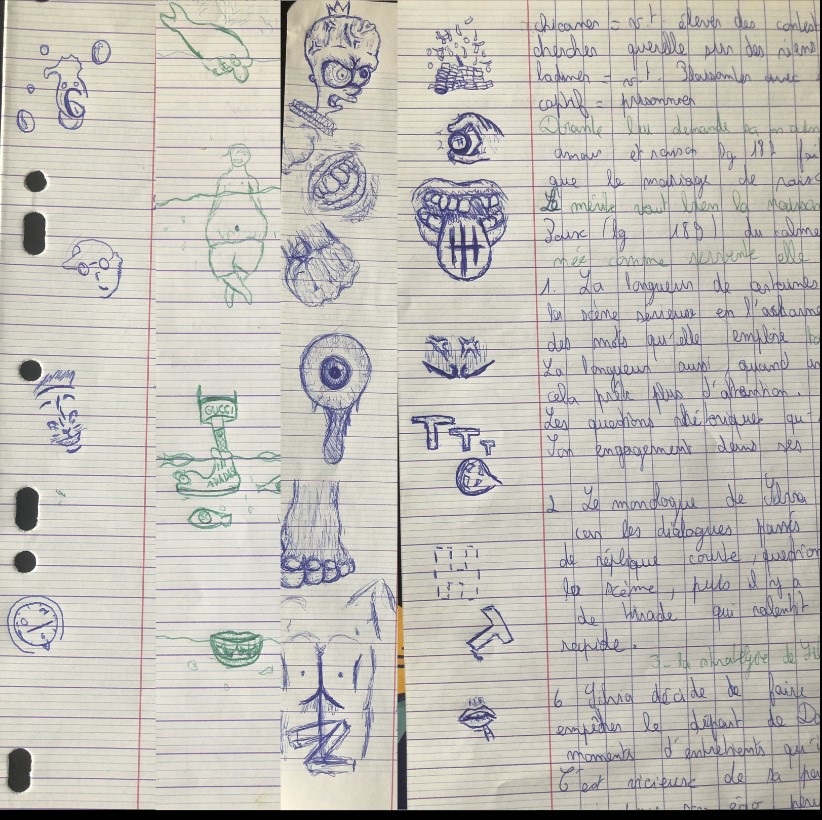 GUCCI
chicaner = v.t. élever des contest
chercher querelle sur des riens
= v.t.
captif = prisonner
Dorante lui demande sa main
amour et raison pg 187
que le mariage de raiso
Le mérite vaut bien la naissan
pg 189) du calme
comme servante elle
1. La longueur de certaines
la scène sérieuse en l'acharne
des mots qu'elle emploie
La longueur aussi, quand on
cela prête plus d'attention.
Les questions rhétoriques qu
Son engagement dans ses
T T T
2 Le monologue de Silvia
car les dialogues passés
de réplique courte, question
la scène, puis il y a
de tirade qui ralentit
rapide.
3- la stratégie de Sil
6 Silvia décide de faire
empêcher le départ de Do
moments d'entretients qu'i
C'est vicieux de sa pa